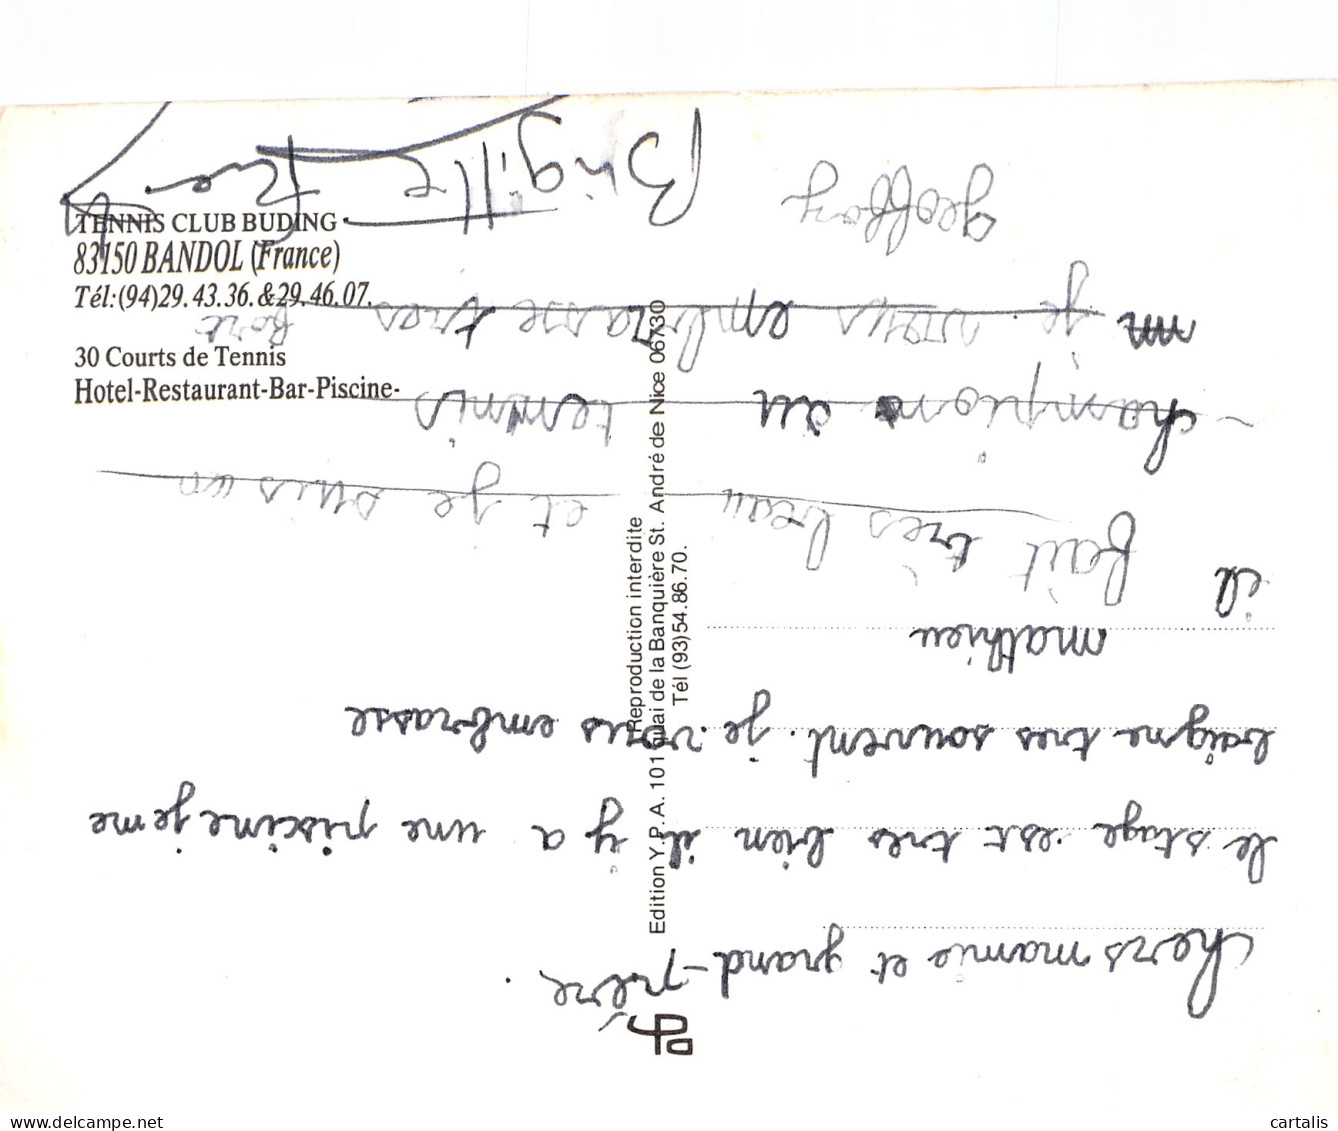 TENNIS CLUB BUDING
83150 BANDOL (France)
Tél:(94)29.43.36.&29.46.07.
30 Courts de Tennis
Hotel-Restaurant-Bar-Piscine-
Edition Y.P.A. 101 Quai de la Banquière St. André de Nice 06730
Reproduction interdite
Tél (93)54.86.70.
Chers mamie et grand-père.
le stage est tres bien il y a une piscine je me
baigne tres souvent. je vous embrasse
mathieu
il fait très beau et je suis un
champion au tennis
je vous embrasse tres fort
geoffroy
Brigitte
cartalis